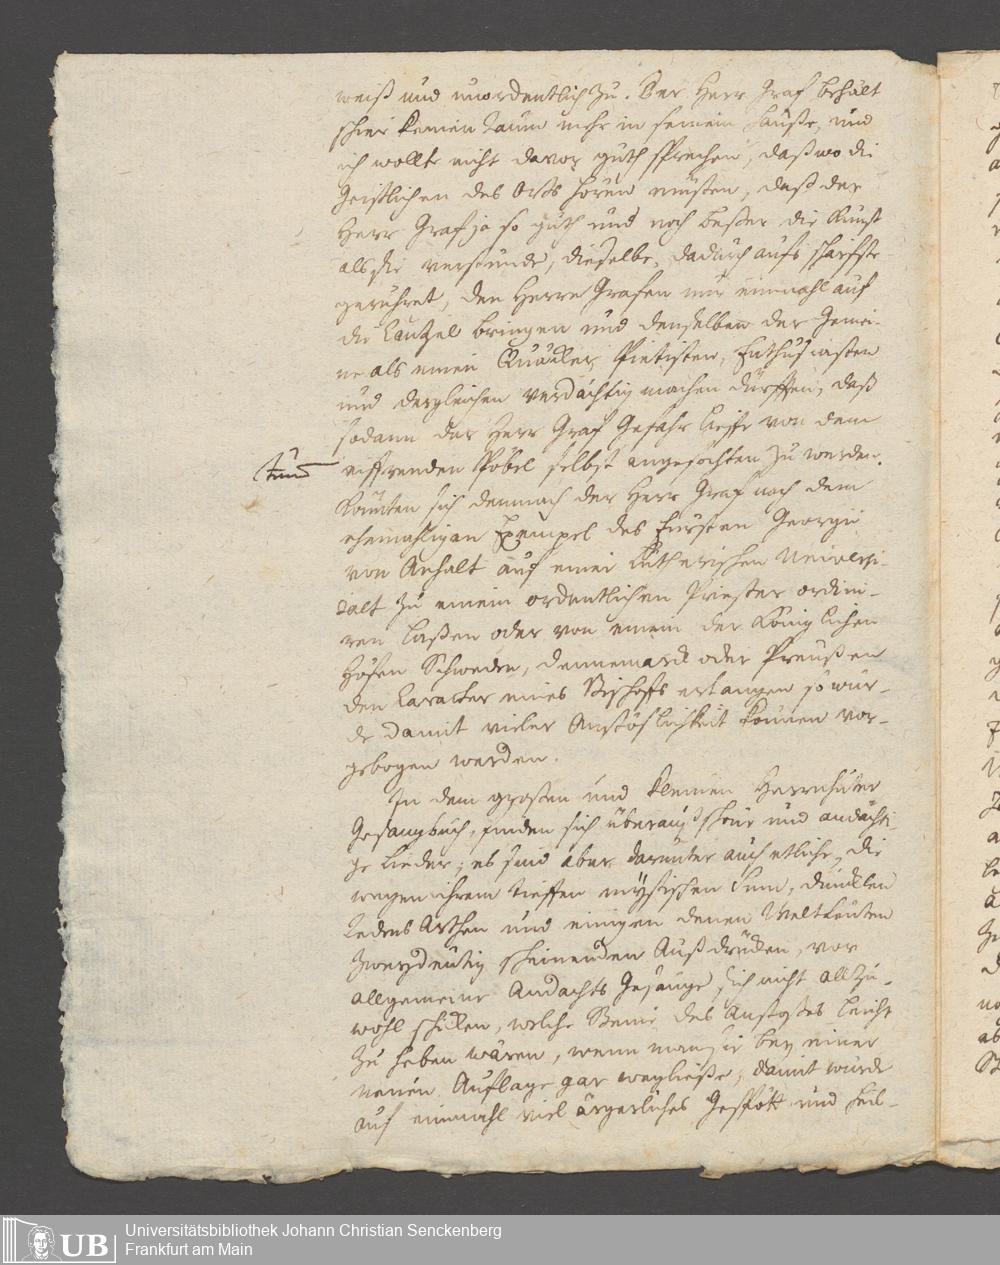 weiß und unordentlich zu. Der Herr Graf behält
schier keinen Raum mehr in seinem Hauße, und
ich wollte nicht davor guth sprechen, daß wo die
Geistlichen des Orts hören müsten, daß der
Herr Graf ja so guth und noch beßer die Kunst
als sie verstünde, dieselbe, dadurch aufs schärfste
gerühret, den Herrn Grafen nur einmahl auf
die Cantzel bringen und denselben der Gemei-
ne als einen Quäcker, Pietisten, Enthusiasten
und dergleichen verdächtig machen dürfften, daß
sodann der Herr Graf Gefahr lieffe von dem
eiffrenden Pöbel selbst angefochten zu werden.
Könten sich demnach der Herr Graf nach dem
ehemahligen Exempel des Fürsten Georgii
von Anhalt auf einer Lutherischen Universi-
tält zu einem ordentlichen Priester ordini-
ren laßen oder von einem der Königlichen
Höfen Schweden, Dennemarck oder Preußen
den Caracter eines Bischoffs erlangen so wür-
de damit vieler Anstößlichkeit können vor-
gebogen werden.
In dem großen und kleinen Herrnhuter
Gesangbuch, finden sich überauß schöne und andächti-
ge Lieder; es sind aber darunter auch etliche, die
wegen ihrem tieffen mystischen Sinn, dunckeln
Redens Arthen und einigen denen Weltleuten
zweydeutig scheinenden Außdrücken, vor
allgemeine Andachts Gesänge sich nicht allzu-
wohl schicken, welche Steine des Anstoßes leicht
zu heben wären, wenn man sie bey einer
neuen Auflage gar wegließe; damit würde
auf einmahl viel ärgerliches Gespött und
Universitätsbibliothek Johann Christian Senckenberg
Frankfurt am Main
UB